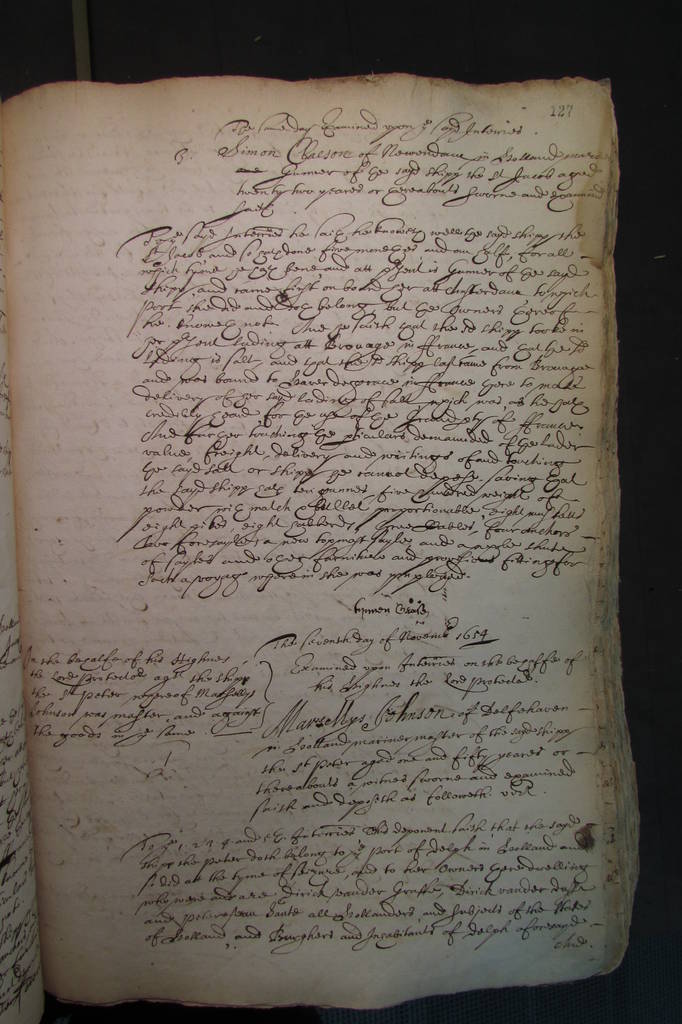 127
The same day Examined upon ye sayd Interries.
3. Simon Claeson of Newendam in Holland
Gunner of the sayd shipp the St Jacob aged
twenty two yeares or thereabouts sworne and examined
saith
To ye sayd Interries he saith he knoweth well the sayd shipp the
St Jacob and so hath done five moneths and an halfe, for all
which tyme he hath bene and att present is Gunner of the sayd
shipp, and came first on board her att Amsterdam to which
Port she did and doth belong but the Owners thereof
he knoweth not. And he saith that the sd shipp tooke in
her present lading att Brouage in ffrance, and that the sd
lading is salt, and that the sd shipp last came from Brouage
and was bound to Haver de grace in ffrance there to make
delivery of her sayd lading of salt which was as he hath
credibly heard for the use of the of ffrance
And further touching the pticulars demanded of the lader
value, freight, delivery and writings of and touching
the sayd salt or shipp he cannot depose. saving that
the sayd shipp hath ten gunnes, five hundred weight of
powder with match &bullet proportionable, eight
eight pikes, eight halberds, three Cables, four anchors
two foresayles a new topmast sayle and
of sayles and other furniture and provisions fitting for
such a voyage wherein she was imployed.
Symen
The seventh day of Novembr 1654
In the behalfe of his Highnes
the Lord Protector agt the shipp
the St Peter whereof Marsellys
Johnson was master, and against
the goods in ye same
Examined upon Interries on the behalfe of
his Highnes the Lord Protector.
Marsellys Johnson of Delfshaven
in Holland mariner master of the sayd shipp
the St Peter aged one and fifty yeares or
thereabouts a witnes sworne and examined
saith and deposeth as followeth vizt
To ye 1. 2. 3. 4. and 5th Interries this deponent saith that the sayd
shipp the Peter doth belong to ye Port of Delph in Holland and
so did at the tyme of seizure, and to her Owners there dwelling
who were and are Dirick vander Graffe, Dirick vander
and all Hollanders, and subjects of the States
of Holland, and Burghers and Inhabitants of Delph aforesayd
And.